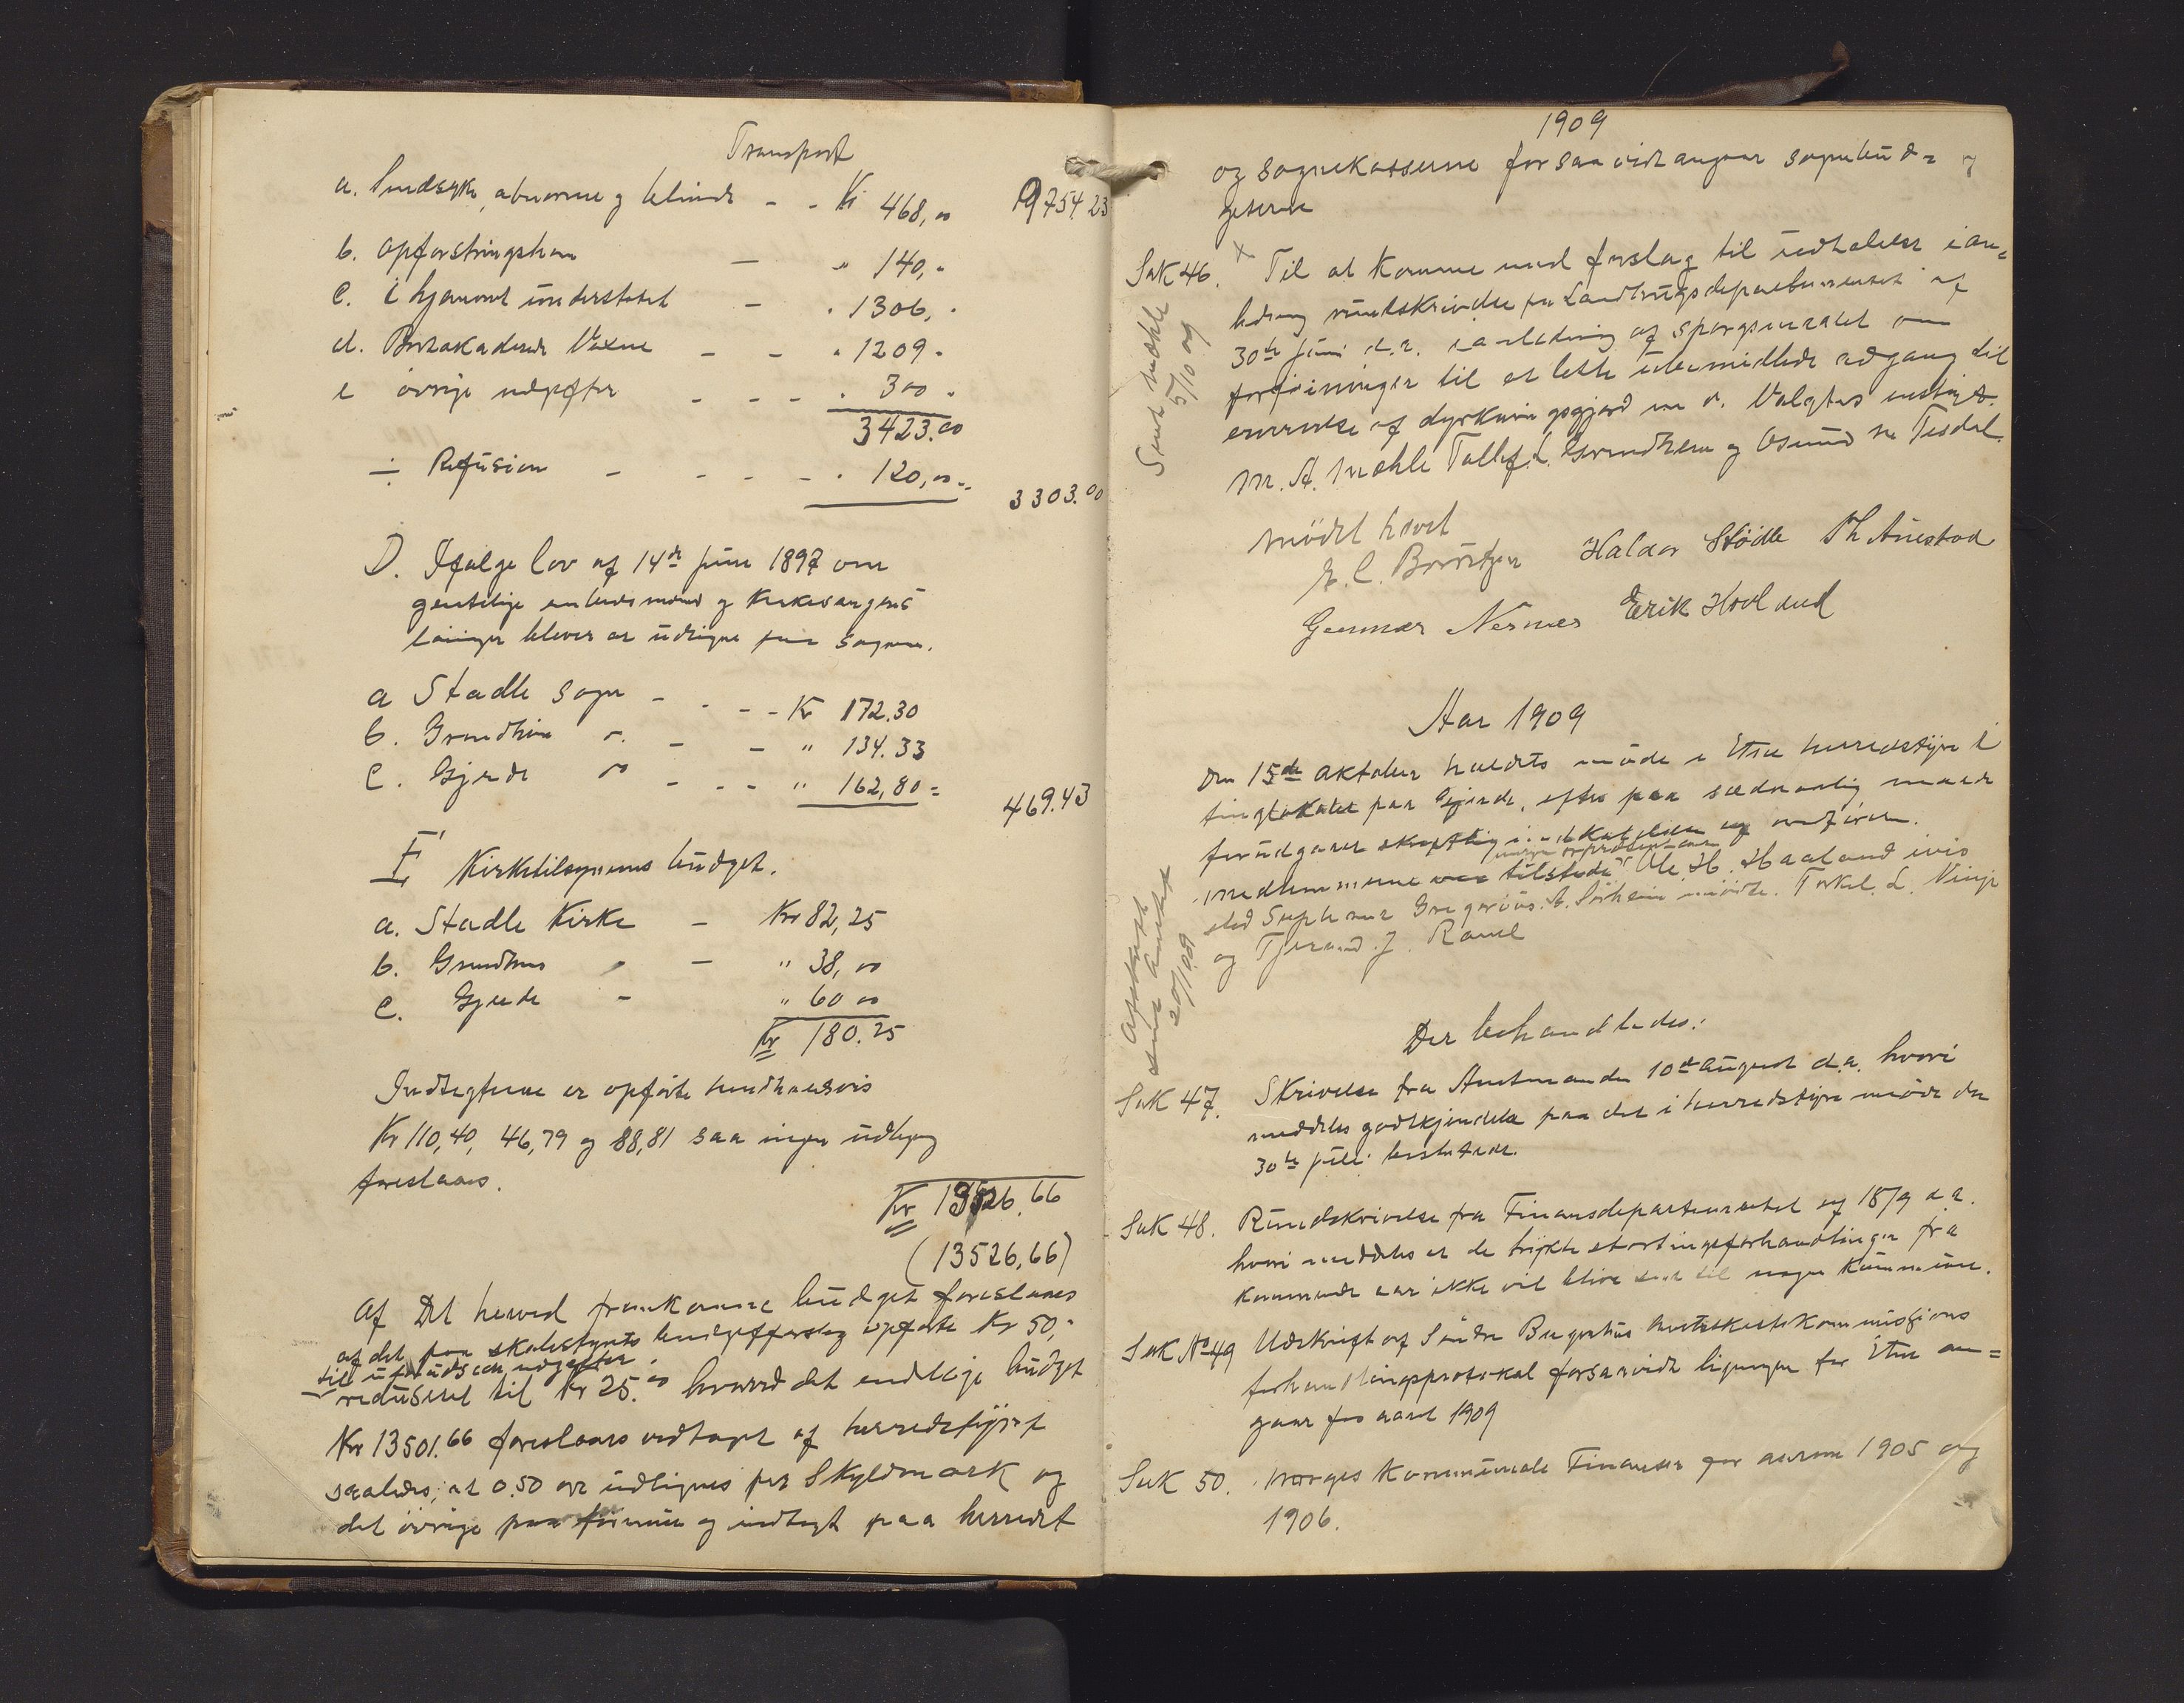 Transport
a. Sindsyke, abnorme g blinde - - Kr 468,00 9754 23
b. opfostringshem — " 140,-
c. i hjemmet understøtet - " 1306,-
d. Bortakaderede Voxne - - " 1209-
e øvrige udgifter - - - " 300-
3423.00
÷ Refusion - - - - " 120,00= 3303.00
D. Ifølge lov af 14de juni 1897 om
geistlige embedsmænd g Kirkesangeres
lønninger bliver at udrigne paa sognene.
a Stadle sogn - - - - Kr 172.30
b. Grindhem " - - " 134.33
c. Gjerde " - - - " 162,80= 469.43
E Kirketilsynenes budget.
a. Stadle Kirke - Kr 82,25
b. Grindhem " - " 38,00
c. Gjerde - " 60 00
Kr 180.25
Indtægterne er opførte henholdsvis
Kr 110,40, 46,79 og 88,81 saa ingen udligning
foreslaaes.
Kr 13526.66
(13526,66)
Af Det herved fremkomne budget foreslaaes
af det paa skolestyrets budgetforslag opførte Kr 50,-
til uforudseede udgifter
reduseret til Kr 25.00 hvorved det endelige budget
Kr 13501.66 foreslaaes vedtaget af herredstyret
saaledes; at 0.50 øre udlignes per Skyldmark og
det øvrige paa formue og indtægt paa herredet
1909
og sognekasserne forsaavidt angaar sognebud=
geterne
Sak 46. x Til at komme med forslag til udtalelse i an=
ledning rundskrivelse fra Landbrugsdepartementet af
30te juni d.a. i anledning af spørgsmaalet om
forføininger til at lette ubemidlede adgang til
erværvelse af dyrkningsjord m. v. Valgtes enstigt.
M. A. Mæhle Tollef. L. Grindhem og Osmund M Tesdal.
Sendt Mæhle
5/10 09
Mødet hævet
E. C. Børretzen Haldor Stødle Th Aurstad
Gunnar Nernes Erik Hovland
Aar 1909
Den 15de Oktober holdtes møde i Etne herredstyre i
tinglokalet paa Gjerde, efter paa sædvanlig maade
forudgaaet skriftlig indkaldelse og omføren.
medlemmerne var tilstede Ole. H. Haaland ivis
sted Suplenne Gregorius. A. Sørheim mødte. Torkel. L. Ninge
og Tjerand. J. Rame
Afskrift
sendt Amtet
20/10 09
Der behandledes:
Sak 47. Skrivelse fra Amtmanden 10de August d.a. hvori
meddeles godkjendelse paa det i herredstyremøde den
30te juli besluttede.
Sak 48. Rundskrivelse fra Finansdepartementet af 18/9 d.a.
hvori meddeles at de trykte stortingsforhandlinger fra
kommende aar ikke vil blive sendt til nogen Kommune.
Sak No 49 Udskrift af Søndre Bergenhus Amtsskattekommisjons
forhandlingsprotokol forsaavidt ligningen for Etne an=
gaar for aaret 1909
Sak 50. Norges Kommunale Finanser for aarene 1905 og
1906.